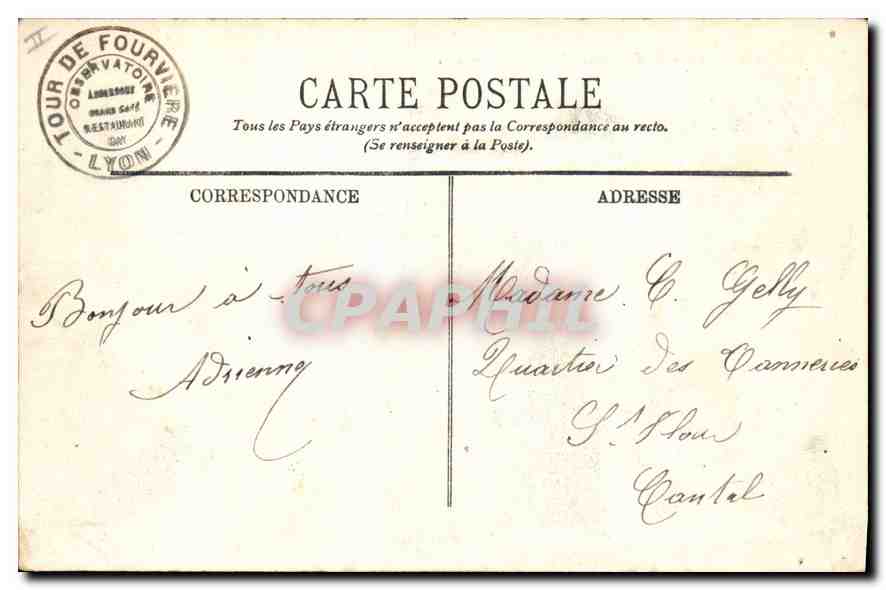 II
TOUR DE FOURVIERE
OBSERVATOIRE
RESTAURANT
- LYON -
CARTE POSTALE
Tous les Pays étrangers n'acceptent pas la Correspondance au recto.
(Se renseigner à la Poste).
CORRESPONDANCE
ADRESSE
Bonjour à tous
Adrienne
Madame C. Gelly
Quartier des Tanneries
St Flour
Cantal
CPAPHIL